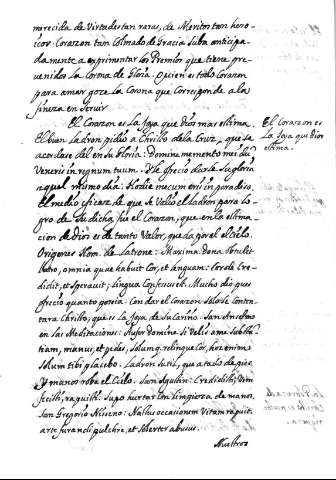 merecida de Virtudes tan raras, de Meritos tan hero-
icos. Corazon tan Colmado de Gracia suba anticipa-
damente a experimentar los Premios que tiene pre-
uenidos la Corona de Gloria. Quien es todo Corazon
para amar goze la Corona que Corresponde a la
fineza en Seruir
El Corazon es la Joya que Dios mas estima.
El buen Ladron pidio a Christo de la Cruz, que se
acordase del en su Gloria: Domine memento mei dum
Veneris in regnum tuum. Y le ofrecio darle su gloria
aquel mismo dia: Hodie mecum eris in paradiso.
El medio eficaz de que se Valio el ladron para lo-
gro de su dicha, fue el Corazon, que en la estima-
cion de Dios es de tanto Valor, que da por el el Cielo.
Origenes Hom. de Latrone: Maxima dona
omnia quae habuit Cor, et linguam: Corde Cre-
didit, et Speravit; lingua Confessus est. Mucho dio pues
ofrecio quanto poseia. Con dar el corazon solo se Conten-
tara Christo, que es la Joya de su Cariño. San Anselmo
en las Meditaciones:
tiam, manus, et pedes, solumq. relinque Cor, hoc enim
solum tibi placebo. Ladron sutil, que atado de pies
y manos roba el Cielo. San Agustin: Credidisti,
Supo hurtar con limpieza de manos.
San Gregorio Niseno: Nactus occasionem Vitam rapuit
arte furandi pulchre, et solerter abusus.
Nuestros
El Corazon es
La Joya que Dios
estima.